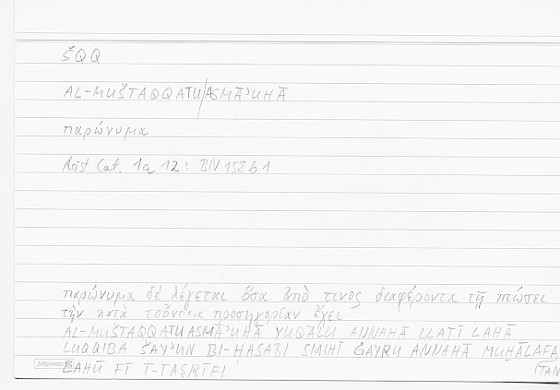 ŠQQ
AL-MUŠTAQQATU/ASMĀʾUHĀ
παρώνυμα
Arist Cat. 1a 12: BN 158b1
παρώνυμα δὲ λέγεται ὅσα ἀπό τινος διαφέροντα τῇ πτώσει
τὴν κατὰ τοὔνομα προσηγορίαν ἔχει
AL-MUŠTAQQATU ASMĀʾUHĀ YUQĀLU ANNAHĀ LLATĪ LAHĀ
LUQQIBA ŠAYʾUN BI-ḤASABI SMIHĪ ĠAYRU ANNAHĀ MUḪĀLAFA
LAHŪ FĪ T-TAṢRĪFI